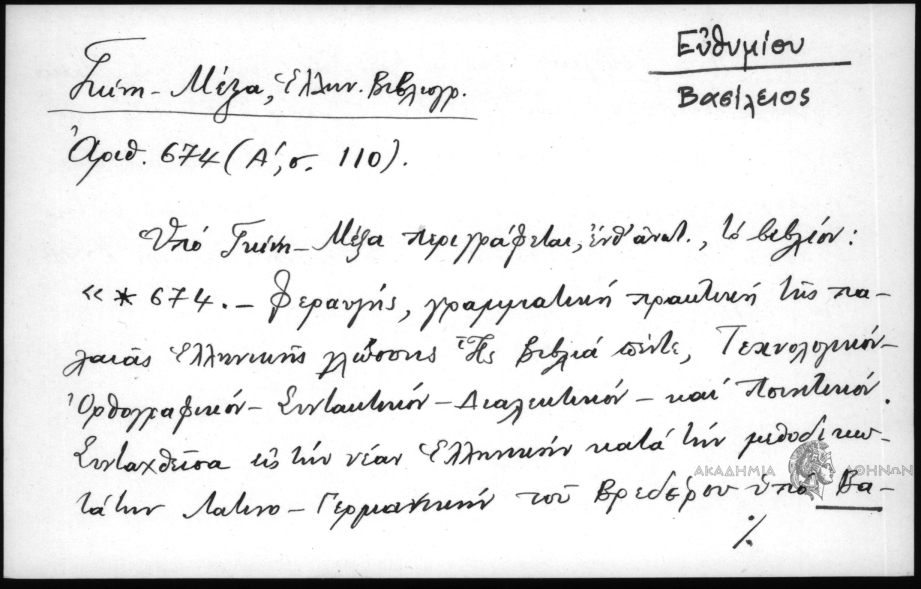 Εὐθυμίου
Βασίλειος
Γκίνη - Μέξα, Ἑλλην. Βιβλιογρ.
Ἀριθ. 674 (Α΄, σ. 110).
Ὑπό Γκίνη - Μέξα περιγράφεται, ἐνθ' ἀνωτ., τό βιβλίον:
«* 674. - Φεραυγής, γραμματική πρακτική τῆς πα-
λαιᾶς Ἑλληνικῆς γλώσσης Εἰς βιβλιά πέντε, Τεχνολογικόν -
Ὀρθογραφικόν - Συντακτικόν - Διαλεκτικόν - καί Ποιητικόν.
Συνταχθεῖσα εἰς τήν νέαν Ἑλληνικήν κατά τήν μεθοδικω-
τάτην Λατινο - Γερμανικήν τοῦ Βρεδέρου ὑπό Βα-
%
ΑΚΑΔΗΜΙΑ ΑΘΗΝΩΝ